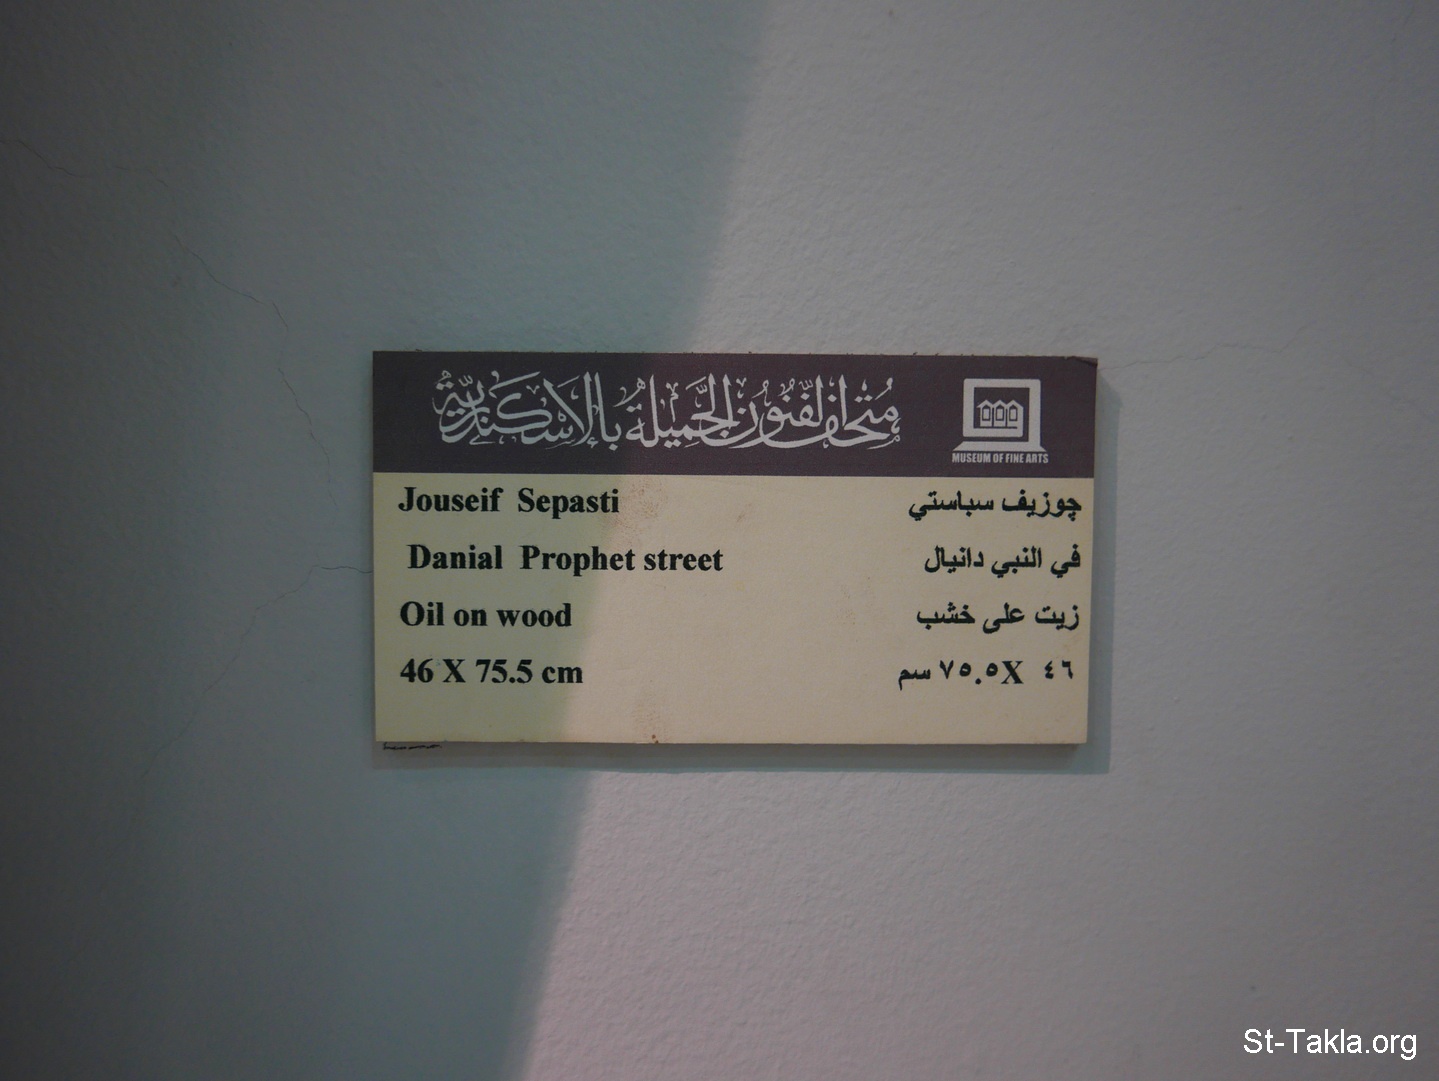 مُتحَف الفُنُون الجَميلة بالإسكندريّة
MUSEUM OF FINE ARTS
Jouseif Sepasti چوزيف سباستي
Danial Prophet street في النبي دانيال
Oil on wood زيت على خشب
46 X 75.5 cm ٤٦ X ٧٥.٥ سم
St-Takla.org